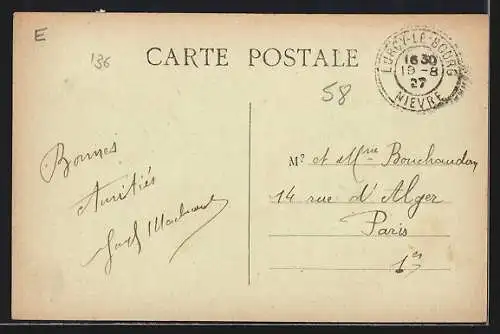 E
136
CARTE POSTALE
LURCY-LE-BOURG
16 30
19-8
27
NIEVRE
58
Bonnes
Amitiés
Mr et Mme Bouchaudon
14 rue d'Alger
Paris
1er